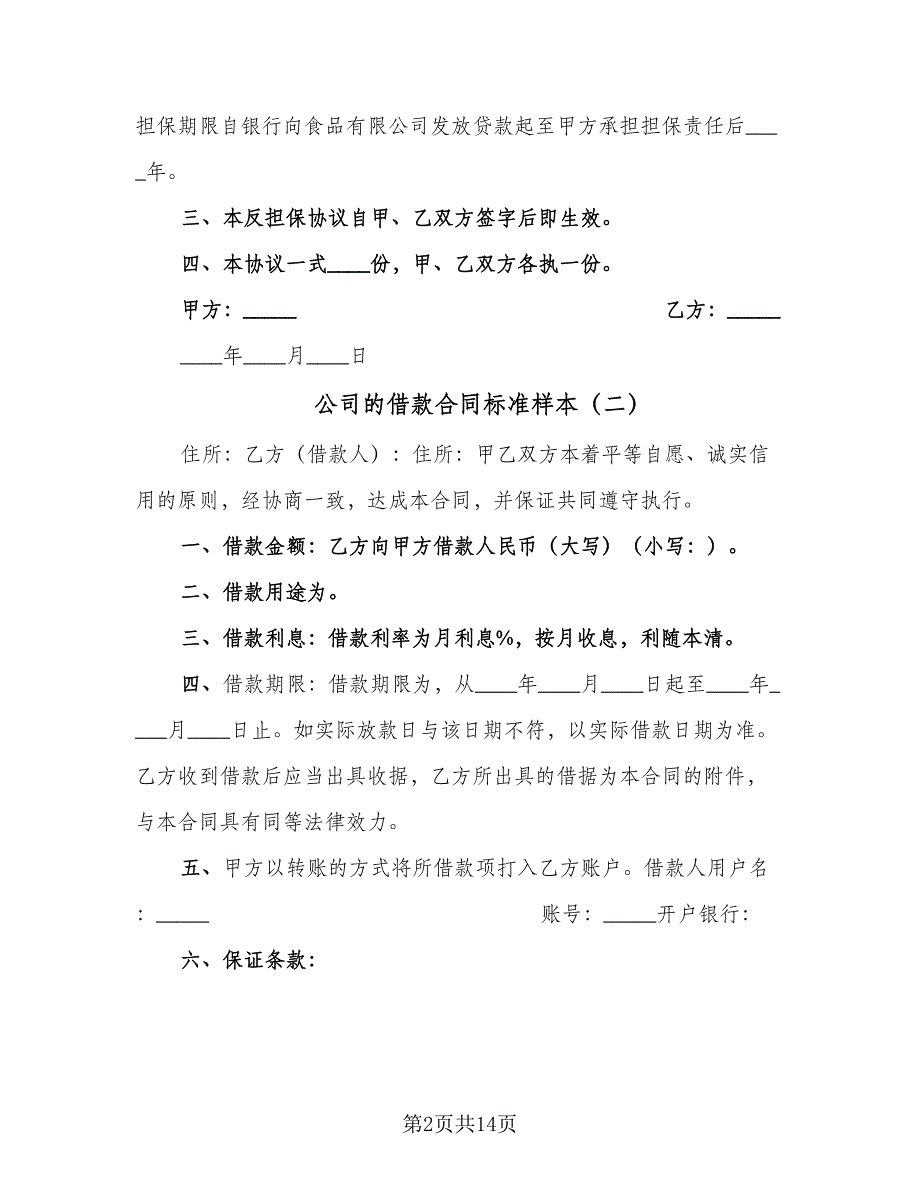 担保期限自银行向食品有限公司发放贷款起至甲方承担担保责任后___
_年。
三、本反担保协议自甲、乙双方签字后即生效。
四、本协议一式____份，甲、乙双方各执一份。
甲方：_____ 乙方：_____
____年____月____日
公司的借款合同标准样本（二）
住所：乙方（借款人）：住所：甲乙双方本着平等自愿、诚实信
用的原则，经协商一致，达成本合同，并保证共同遵守执行。
一、借款金额：乙方向甲方借款人民币（大写）（小写：）。
二、借款用途为。
三、借款利息：借款利率为月利息%，按月收息，利随本清。
四、借款期限：借款期限为，从____年____月____日起至____年_
___月____日止。如实际放款日与该日期不符，以实际借款日期为准。
乙方收到借款后应当出具收据，乙方所出具的借据为本合同的附件，
与本合同具有同等法律效力。
五、甲方以转账的方式将所借款项打入乙方账户。借款人用户名
：_____ 账号：_____开户银行：
六、保证条款：
第2页共14页